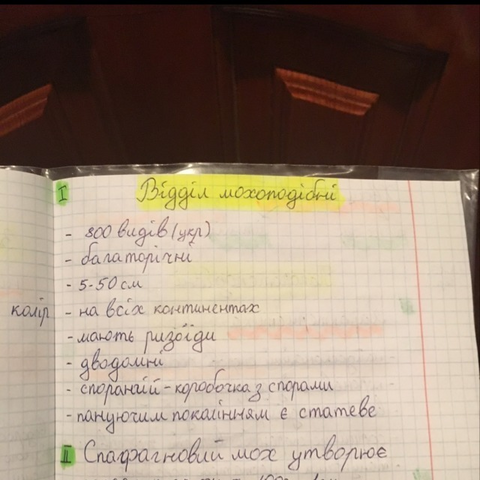 I Відділ мохоподібні
- 800 видів (укр)
- багаторічні
- 5-50 см
колір - на всіх континентах
- мають ризоїди
- дводомні
- спорангій - коробочка з спорами
- пануючим поколінням є статеве
II Спафагновий мох утворює